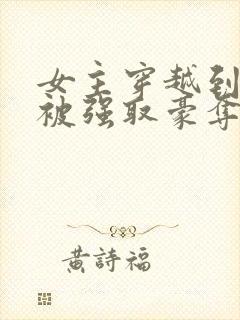 女主穿越到
被强取豪夺
黃詩福